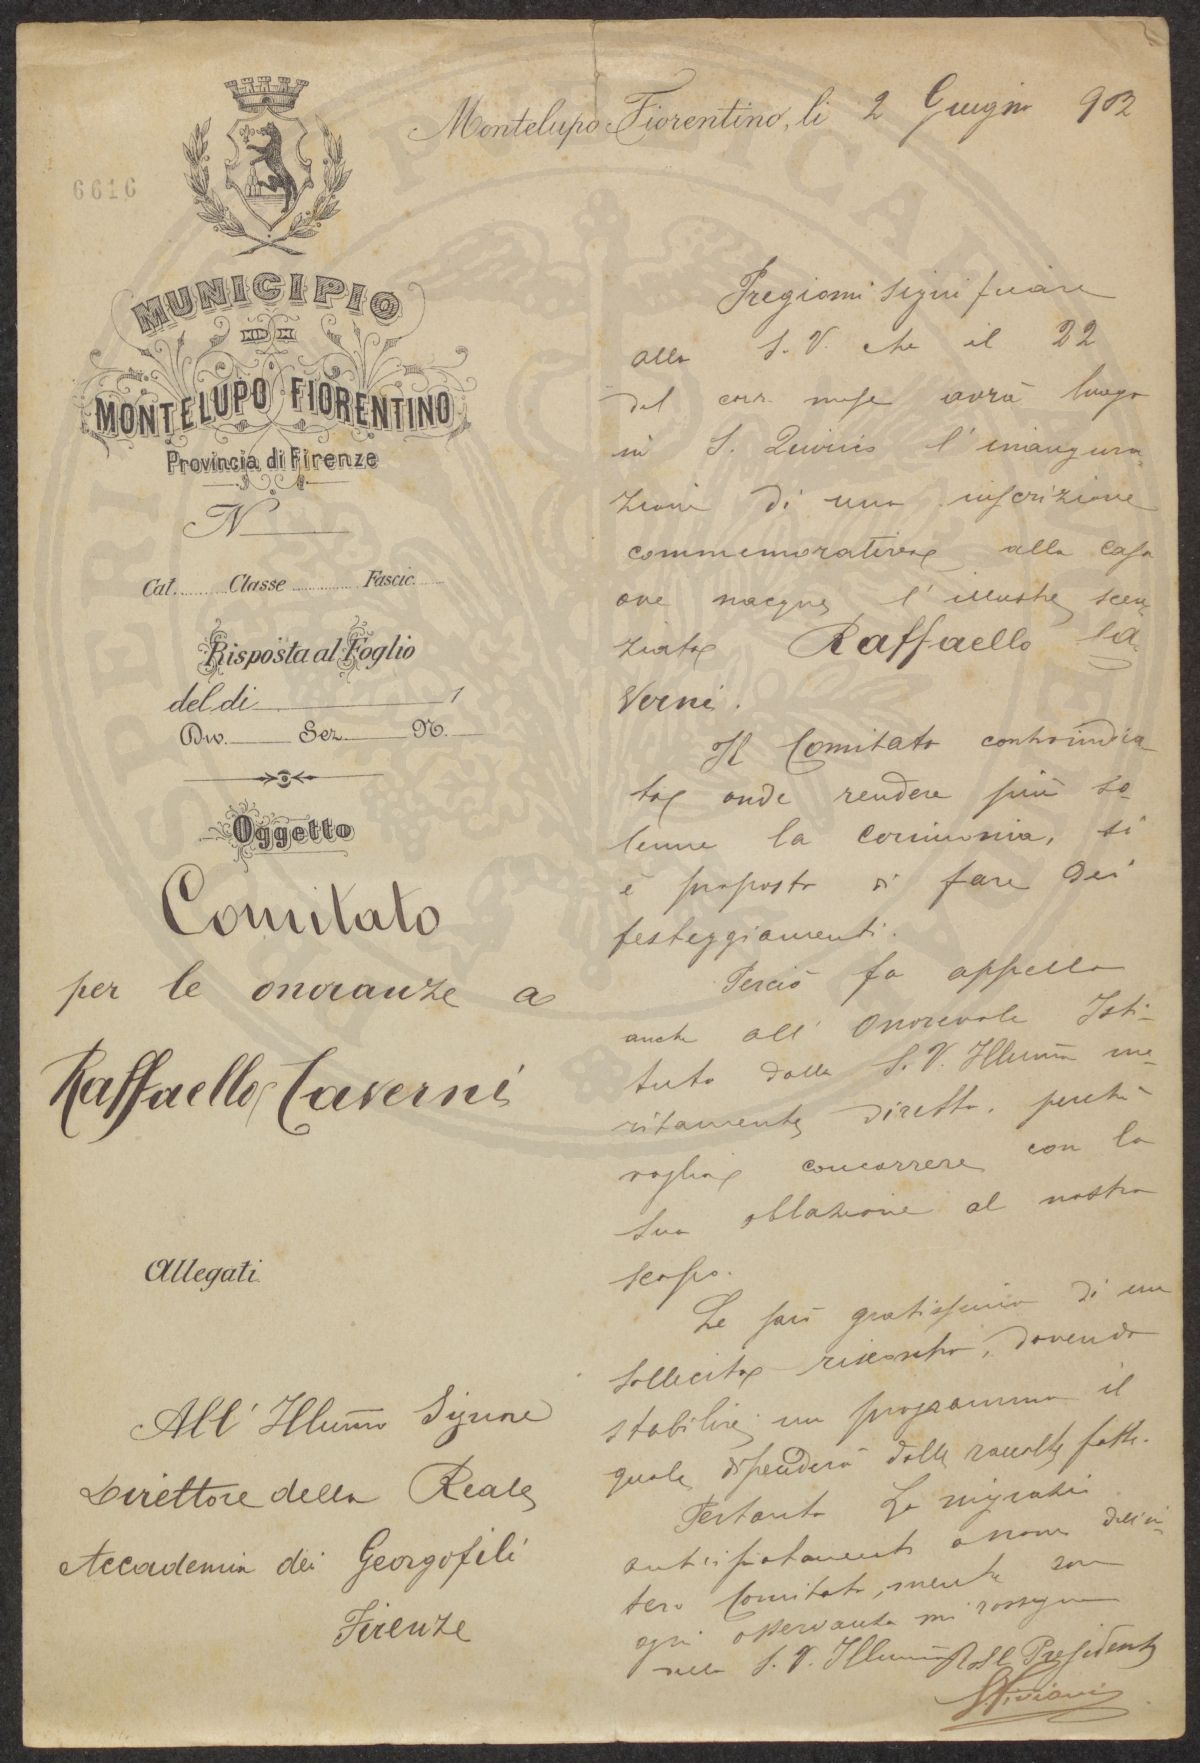 Montelupo Fiorentino, li 2 Giugno 902
6616
MUNICIPIO
DI
MONTELUPO FIORENTINO
Provincia di Firenze
N
Cat. Classe Fascic.
Risposta al Foglio
del dì 1
Div. Sez. N.
Oggetto
Comitato
per le onoranze a
Raffaello Caverni
Allegati
All' Illumo Signore
Direttore della Reale
Accademia dei Georgofili
Firenze
Pregiomi significare
alla S. V. che il 22
del corr. mese avrà luogo
in S. Quirico l'inaugura-
zione di una inscrizione
commemorativa alla casa
ove nacque l'illustre scen-
ziato Raffaello Ca-
verni.
Il Comitato controindica-
to onde rendere più so-
lenne la cerimonia, si
è proposto di fare dei
festeggiamenti.
Perciò fa appello
anche all' Onorevole Isti-
tuto dalla S. V. Illuma me-
ritamente diretto, perchè
voglia concorrere con la
sua oblazione al nostro
scopo.
Le sarò gratissimo di un
sollecito riscontro, dovendo
stabilire un programma il
quale dipenderà dalle raccolte fatte.
Pertanto La ringrazio
anticipatamente a nome dell'in-
tero Comitato, mentre con
ogni osservanza mi rassegno
della S. V. Illuma Presidente
Viviani